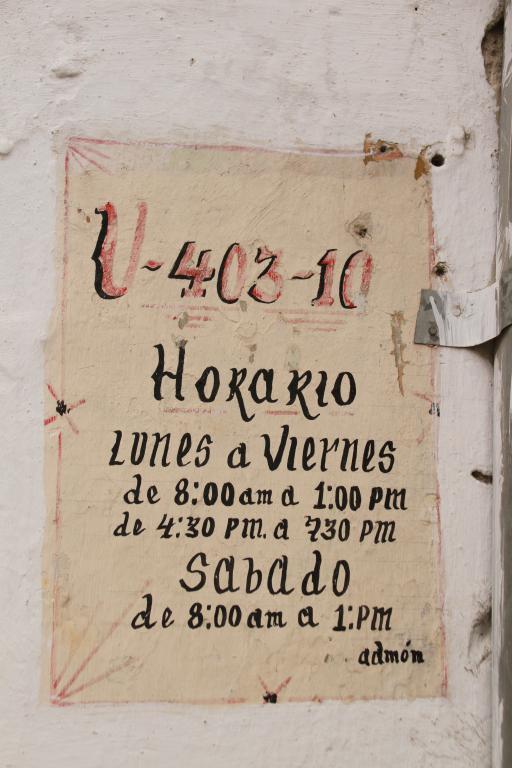 U-403-10
Horario
Lunes a Viernes
de 8:00 am a 1:00 PM
de 4:30 PM. a 730 PM
Sabado
de 8:00 am a 1:PM
admón